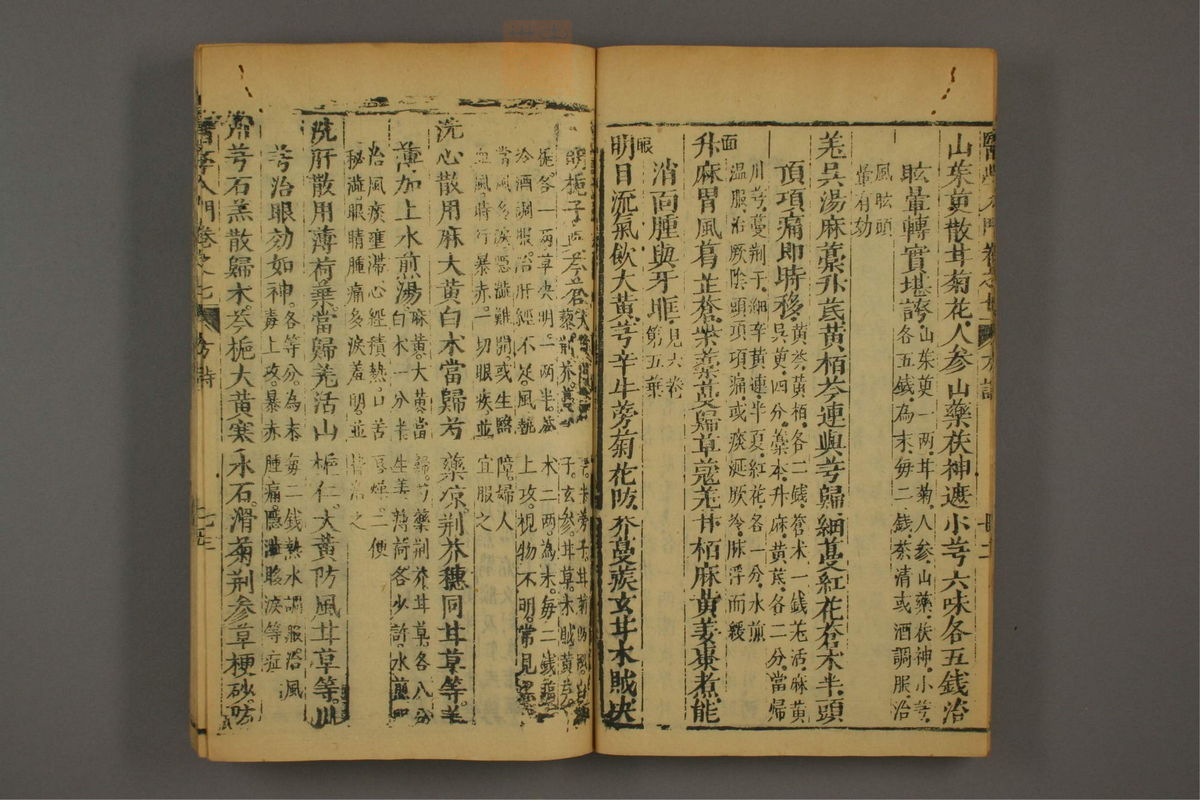 山茱萸散甘菊花人參山藥茯神遮小芎六味各五錢治
眩暈轉實堪誇
山茱萸一兩甘菊人參山藥茯神小芎
各五錢為末每二錢茶清或酒調服治
風眩頭
暈有効
羌吳湯麻藁升芪黃栢芩連與芎歸細蔓紅花蒼朮半頭
頂項痛即時移
黃芩黃栢各二錢蒼朮一錢羌活麻黃
吳萸四分藁本升麻黃芪各二分當歸
川芎蔓荆子細辛黃連半夏紅花各一分水煎
溫服治厥陰頭頂項痛或痰涎厥冷脉浮而緩
面
升麻胃風葛芷蒼柴藁蔓歸草蔻羌甘栢麻黃姜棗煮能
消面腫與牙眶
見六卷
第五葉
眼
明目流氣飲大黃芎辛牛蒡菊花防荠蔓蒺玄甘木賊決
明梔子
梔各一兩草決明一兩半蒼
朮二兩為末每二錢
冷酒調服治肝經不足風熱
上攻視物不明常見
當風多淚隱澁難開或生翳
障婦人
血風時行暴赤一切眼疾並
宜服之
洗心散用麻大黃白朮當歸芍藥凉荆芥穗同甘草等姜
薄加上水煎湯
麻黃大黃當
歸芍藥荆芥甘草各八分
白朮一分半
生姜薄荷各少許水煎
治風痰壅滯心經積熱口苦
唇燥二便
秘澁眼睛腫痛多淚羞明並
洗肝散用薄荷葉當歸羌活山梔仁大黃防風甘草等川
芎治眼効如神
各等分為末
每二錢熱水調服治風
毒上攻暴赤
腫痛隱澁眵淚等症
芎石羔散歸朮芩梔大黃寒水石滑菊荆參草梗砂防